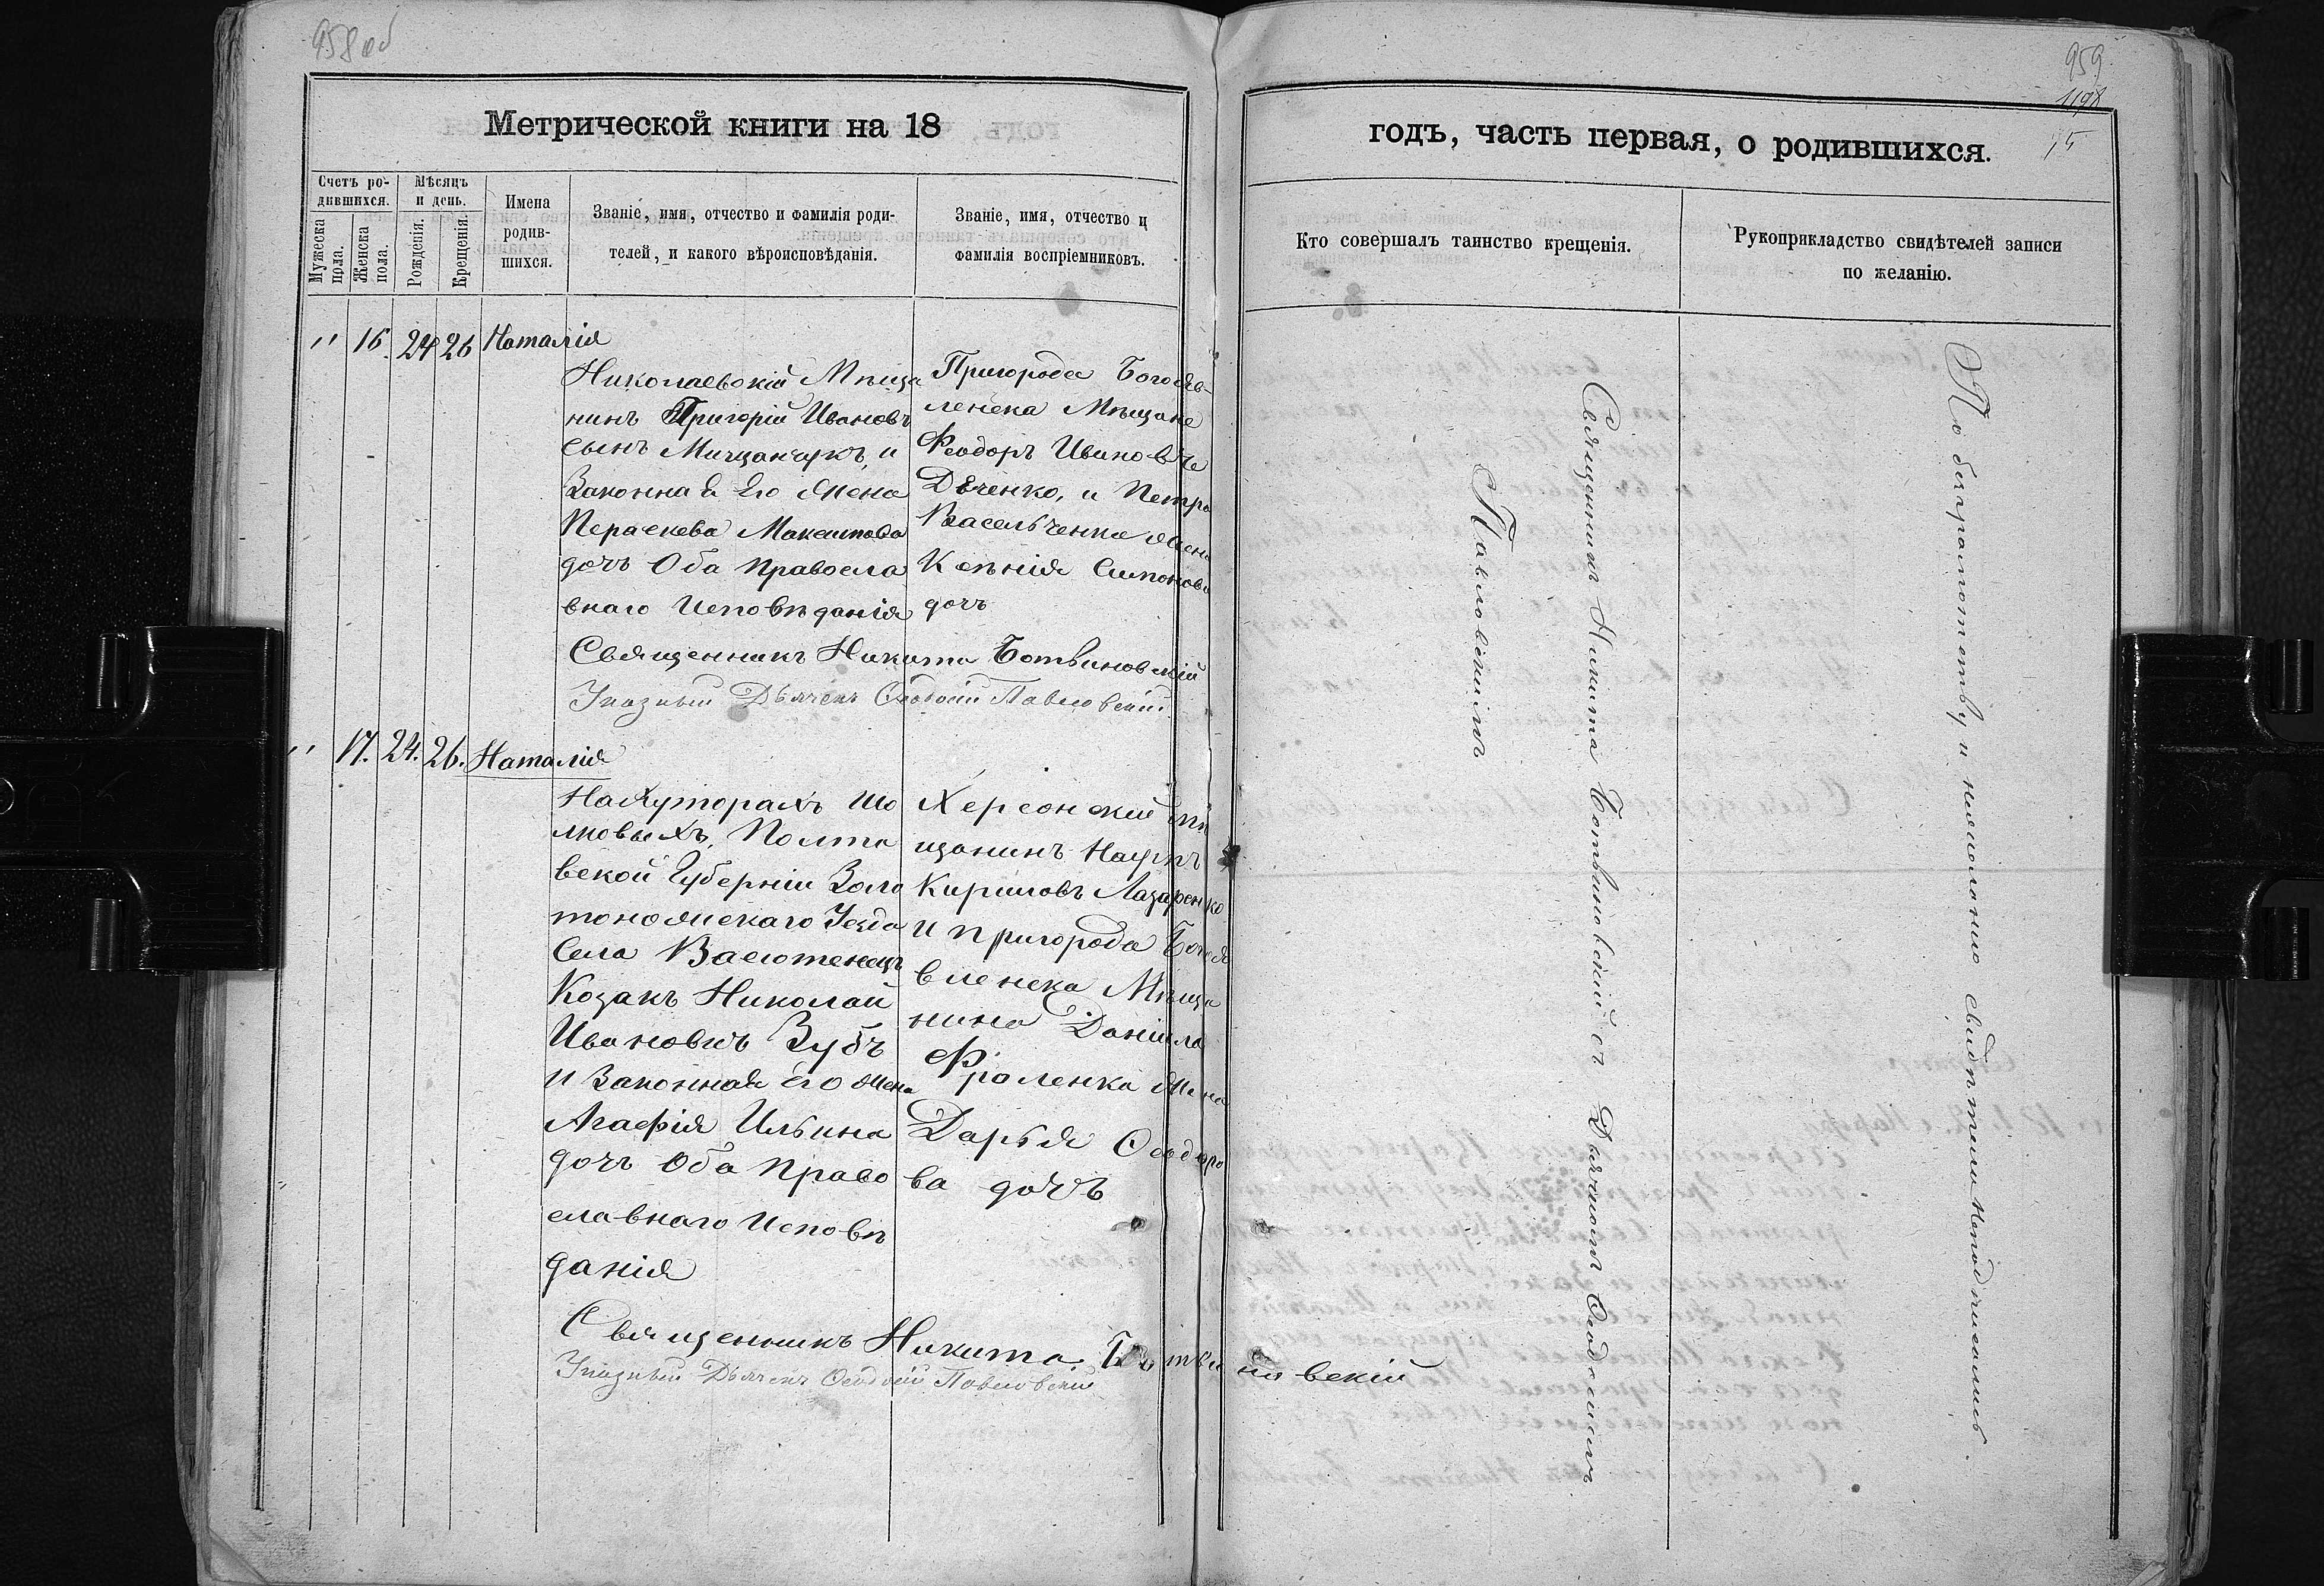 958 об
Метрической книги на 18
Счетъ ро-
дившихся.
Мѣсяцъ
и день.
Мужеска
пола.
Женска
пола.
Рожденія.
Крещенія.
Имена
родив-
шихся.
Званіе, имя, отчество и фамилія роди-
телей, и какого вѣроисповѣданія.
Званіе, имя, отчество и
фамилія воспріемниковъ.
" 16. 24 26 Наталія
Николаевскій Мѣща
нинъ Григорій Ивановъ
сынъ Мищанчукъ, и
Законная Его Жена
Параскева Максимова
дочъ Оба Правосла
внаго Исповѣданія
Пригорода Богояв-
ленска Мѣщане
Феодоръ Ивановъ
Дѣченко, и Петра
Васельченка Жена
Ксенія Симонова
дочъ
Священникъ Никита Ботвиновскій
Указный Дьячекъ Ѳеодосій Павловскій
" 17. 24. 26. Наталія
На Хуторахъ Шо
лковыхъ, Полта
вской Губерніи Золо
тоножскаго Уезда
Села Васютенецъ
Козакъ Николай
Ивановичъ Зубъ
и Законная его Жена
Агафія Ильина
дочъ Оба Право
славнаго Исповѣ
данія
Херсонскій мѣ
щанинъ Наумъ
Кириловъ Лазаренко
и пригорода Богоя
вленска Мѣща
нина Даніила
Фроленка Жена
Дарья Ѳеодоро
ва дочъ
Священникъ Никита Ботвиновскій
Указный Дьячекъ Ѳеодосій Павловскій
959
1198
15
годъ, часть первая, о родившихся.
Кто совершалъ таинство крещенія.
Рукоприкладство свидѣтелей записи
по желанію.
Священникъ Никита Ботвиновскій съ Дьячкомъ Ѳеодосіемъ
Павловскимъ
По безграмотству и нежеланію свидѣтели неподписались.